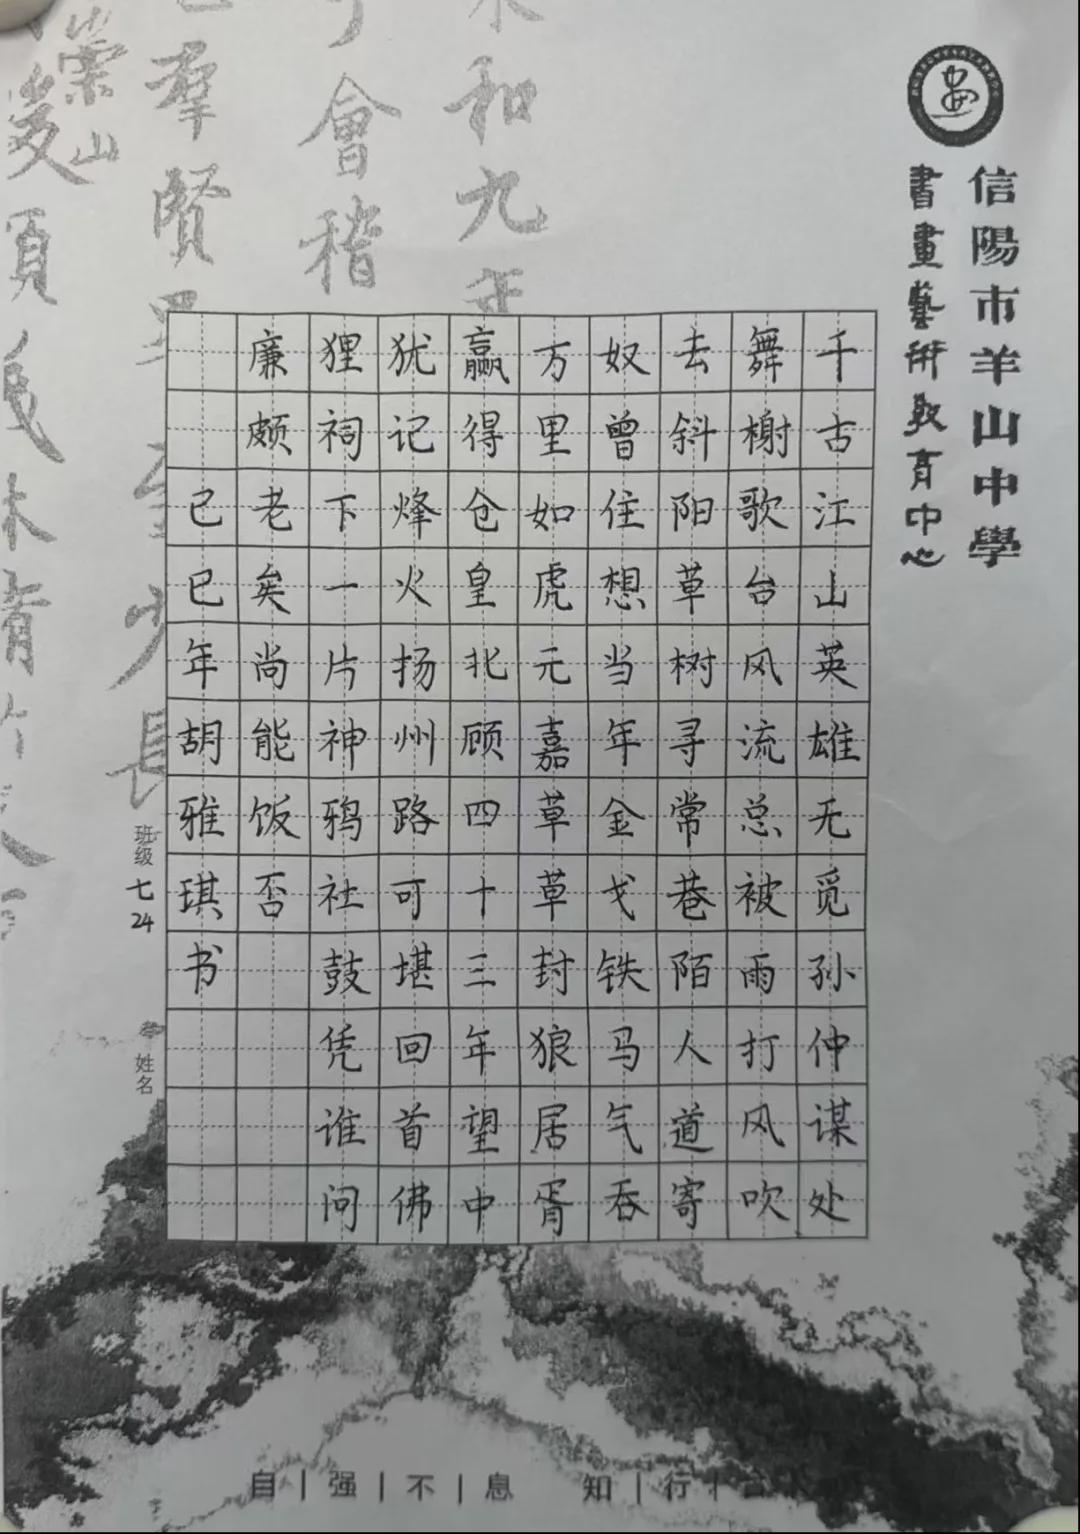 信陽市羊山中學
書畫藝術教育中心
千古江山英雄无觅孙仲谋处
舞榭歌台风流总被雨打风吹
去斜阳草树寻常巷陌人道寄
奴曾住想当年金戈铁马气吞
万里如虎元嘉草草封狼居胥
赢得仓皇北顾四十三年望中
犹记烽火扬州路可堪回首佛
狸祠下一片神鸦社鼓凭谁问
廉颇老矣尚能饭否
己巳年胡雅琪书
班级 七24
姓名
和九
會稽
羣賢
崇山
自|强|不|息 知|行|